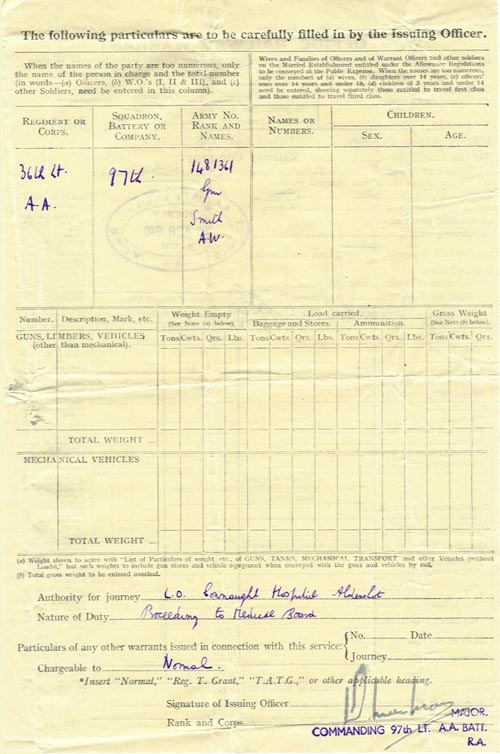 The following particulars are to be carefully filled in by the Issuing Officer.
When the names of the party are too numerous, only
the name of the person in charge and the total number
(in words—(a) Officers, (b) W.O.'s (I, II & III), and (c)
other Soldiers, need be entered in this column).
Wives and Families of Officers and of Warrant Officers and other soldiers
on the Married Establishment entitled under the Allowance Regulations
to be conveyed at the Public Expense. When the names are too numerous,
only the numbers of (a) wives, (b) daughters over 14 years, (c) officers'
sons over 14 years and under 18, (d) children of 3 years and under 14
need be entered, showing separately those entitled to travel first class
and those entitled to travel third class.
REGIMENT OR
CORPS.
SQUADRON,
BATTERY OR
COMPANY.
ARMY NO.
RANK AND
NAMES.
NAMES OR
NUMBERS.
CHILDREN.
SEX.
AGE.
36th Lt.
A.A.
97th
1481361
Gnr
Smith
A.W.
Number.
Description, Mark, etc.
Weight Empty
(See Note (a) below).
Load carried.
Baggage and Stores.
Ammunition.
Gross Weight
(See Note (b) below).
GUNS, LIMBERS, VEHICLES
(other than mechanical).
Tons Cwts. Qrs. Lbs. Tons Cwts. Qrs. Lbs. Tons Cwts. Qrs. Lbs. Tons Cwts. Qrs.
TOTAL WEIGHT ...
MECHANICAL VEHICLES
TOTAL WEIGHT ...
(a) Weight shown to agree with "List of Particulars of weight etc., of GUNS, TANKS, MECHANICAL TRANSPORT and other Vehicles (without
Loads)," but such weights to include gun stores and vehicle equipment when conveyed with the guns and vehicles by rail.
(b) Total gross weight to be entered overleaf.
Authority for journey L.O. Connaught Hospital Aldershot
Nature of Duty Proceeding to Medical Board
Particulars of any other warrants issued in connection with this service:
No. Date
Journey
Chargeable to Normal.
*Insert "Normal," "Reg. T. Grant," "T.A.T.G.," or other applicable heading.
Signature of Issuing Officer
Rank and Corps
MAJOR.
COMMANDING 97th LT. A.A. BATT.
R.A.